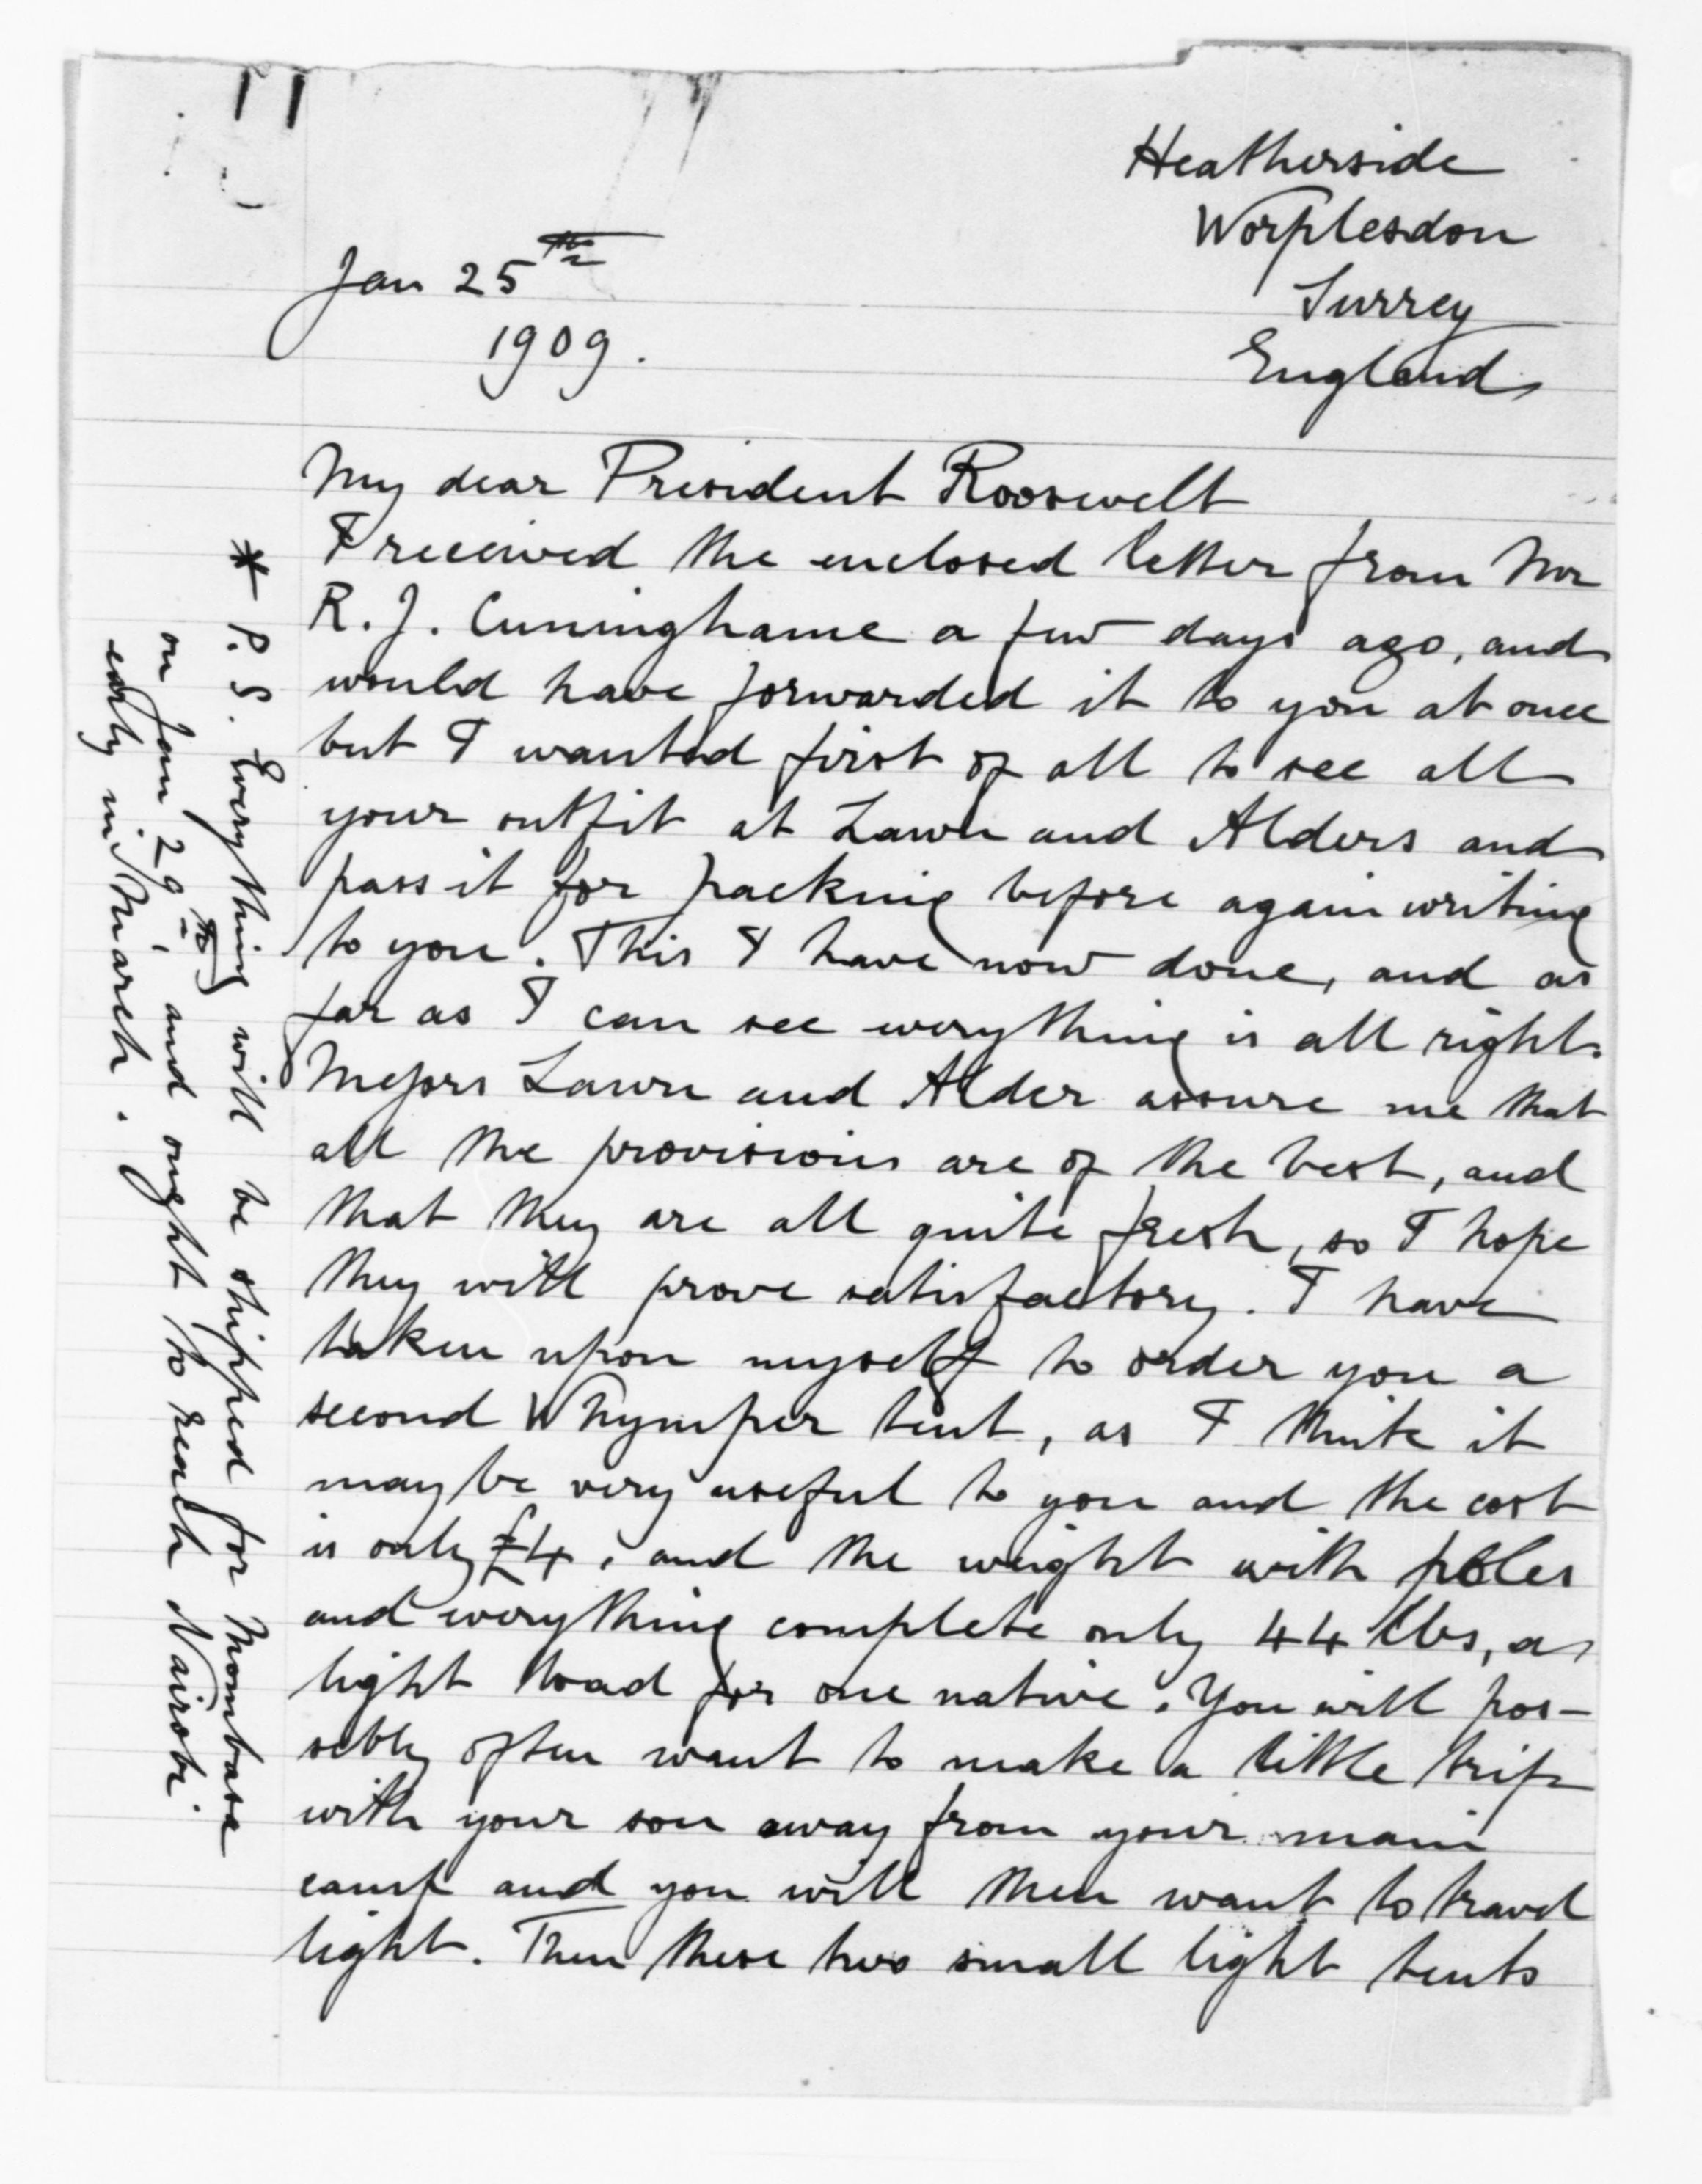 Heatherside
Worplesdon
Surrey
England
Jan 25th
1909.
My dear President Roosevelt
I received the enclosed letter from Mr
R. J. Cuninghame a few days ago, and
would have forwarded it to you at once
but I wanted first of all to see all
your outfit at Lawn and Alders and
pass it for packing before again writing
to you. This I have now done, and as
far as I can see everything is all right.
Messrs Lawn and Alder assure me that
all the provisions are of the best, and
that they are all quite fresh, so I hope
they will prove satisfactory. I have
taken upon myself to order you a
second Whymper tent, as I think it
may be very useful to you and the cost
is only £4, and the weight with poles
and everything complete only 44 lbs, a
light load for one native. You will pos-
sibly often want to make a little trip
with your son away from your main
camp and you will then want to travel
light. Then these two small light tents
* P.S. Everything will be shipped for Mombasa
on Jan 29th, and ought to reach Nairobi
early in March.